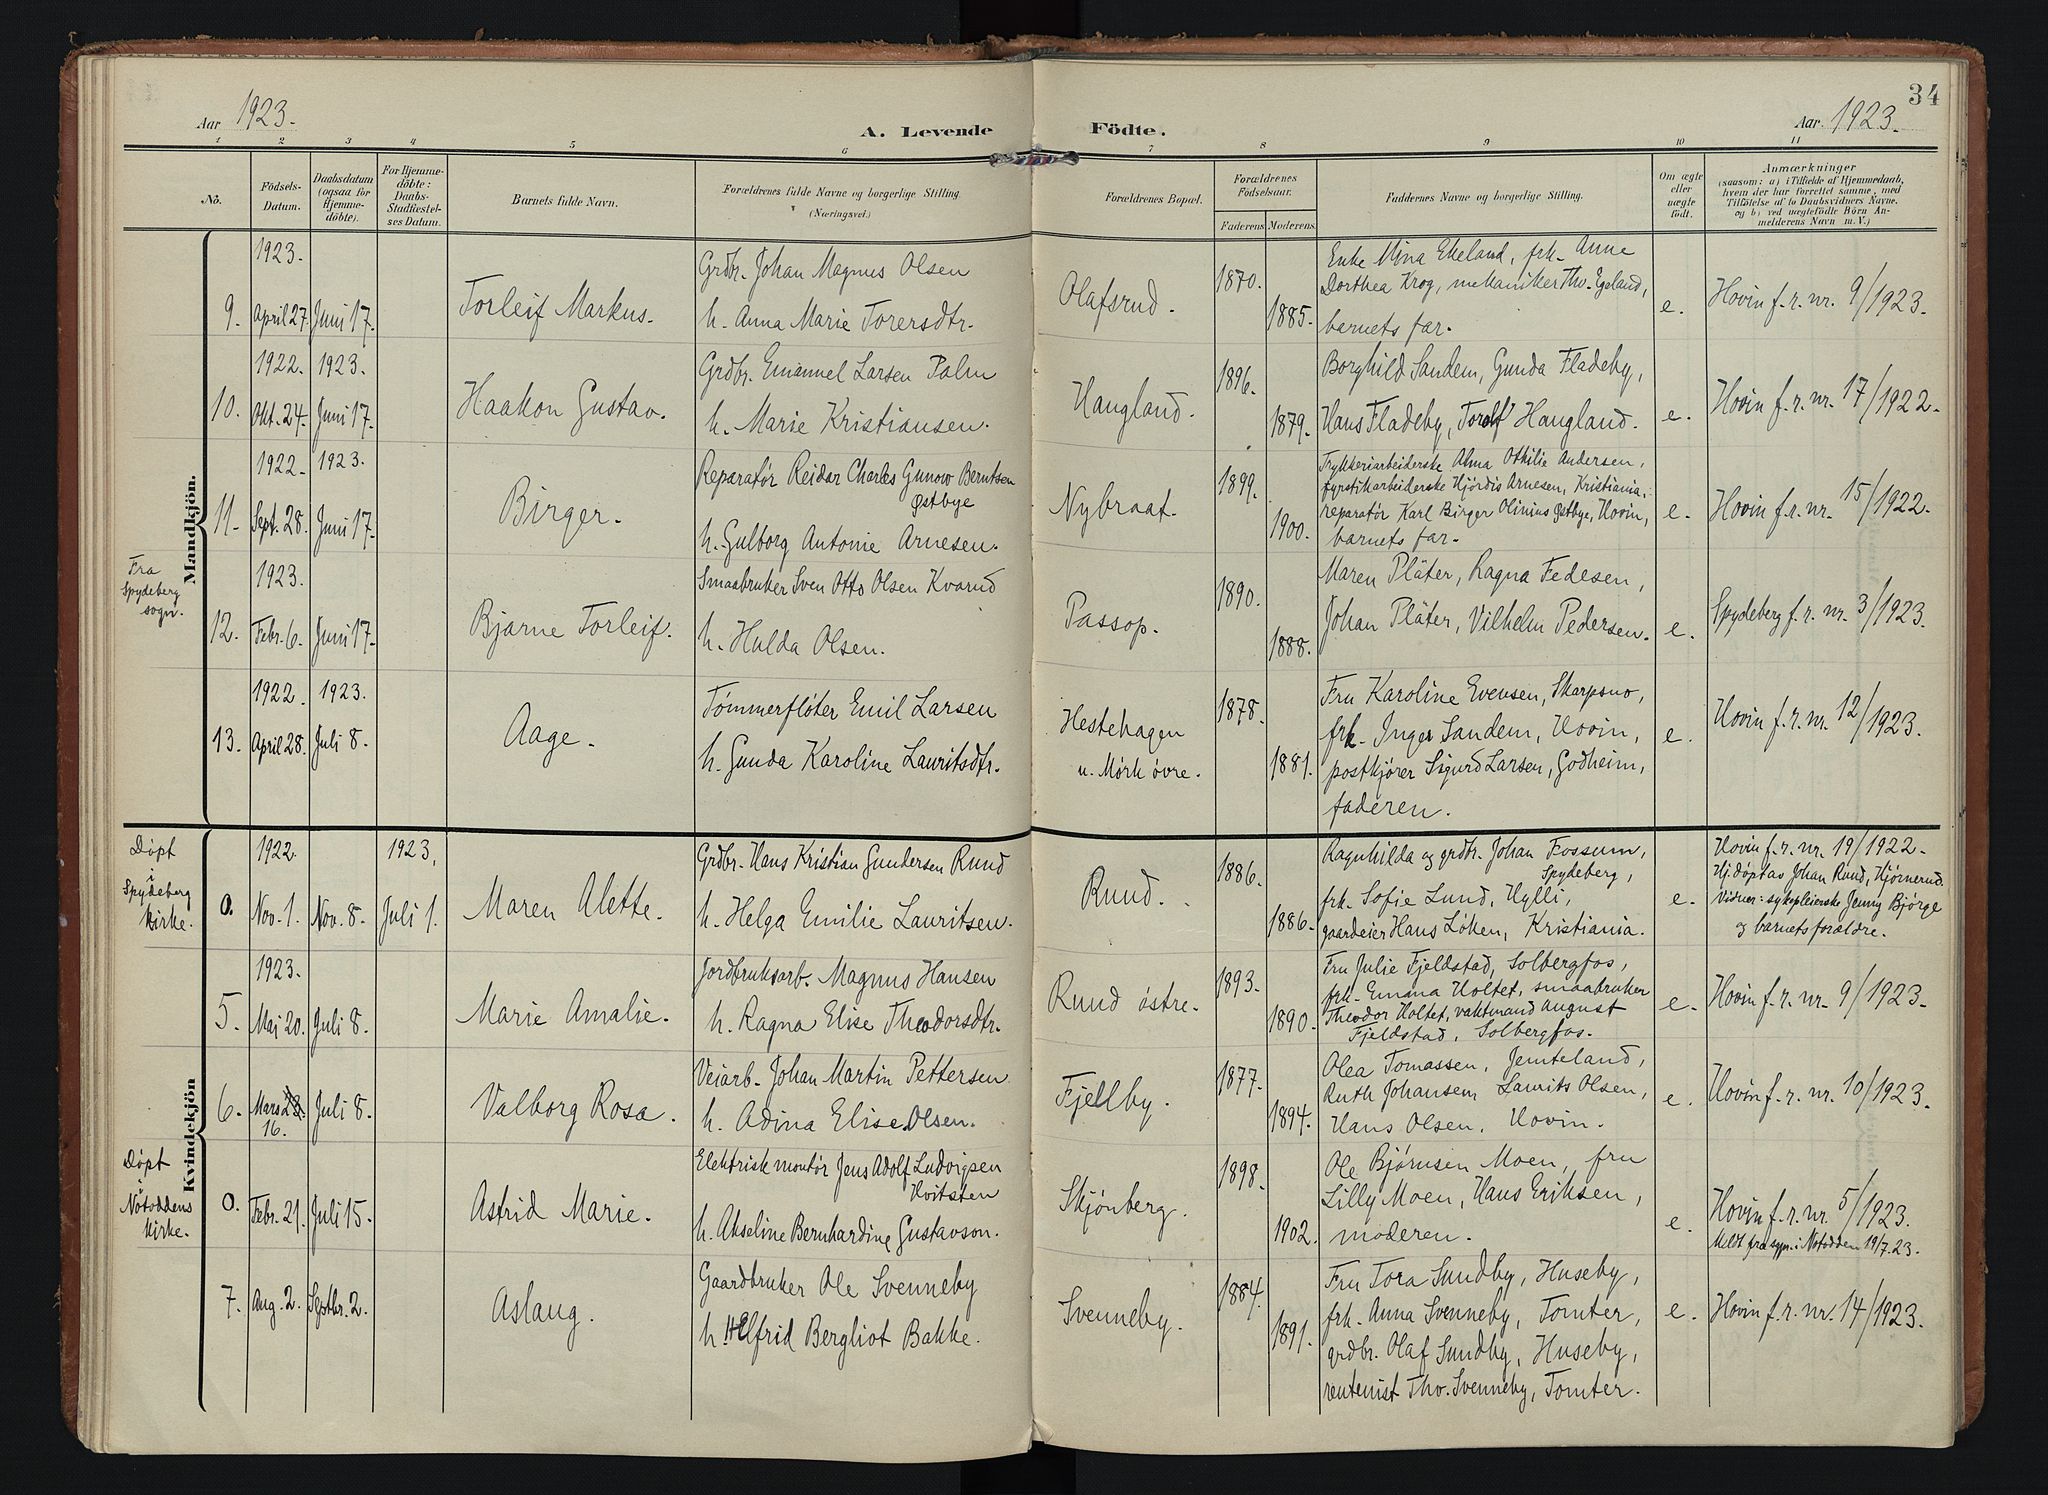 34
Aar 1923.
A. Levende Födte.
Aar 1923.
1 2 3 4 5 6 7 8 9 10 11
No.
Födsels-
Datum.
Daabsdatum
(ogsaa for
Hjemme-
döbte).
For Hjemme-
döbte:
Daabs-
Stadfæstel-
ses Datum.
Barnets fulde Navn.
Forældrenes fulde Navne og borgerlige Stilling.
(Næringsvei.)
Forældrenes Bopæl.
Forældrenes
Födselsaar.
Faderens Moderens
Faddernes Navne og borgerlige Stilling.
Om ægte
eller
uægte
født.
Anmærkninger
(saasom: a) i Tilfælde af Hjemmedaab,
hvem der har forrettet samme, med
Tilföielse af to Daabsvidners Navne,
og b) ved uægtefödte Börn An-
melderens Navn m. V.)
Mandkjön.
1923.
9. April 27. Juni 17.
Torleif Markus.
Grdbr. Johan Magnus Olsen
h. Anna Marie Torersdtr.
Olafsrud.
1870.
1885.
Enke Mina Ekeland, frk. Anne
Dorthea Krog, mekaniker Thv. Egeland,
barnets far.
e.
Hovin f. r. nr. 9/1923.
1922. 1923.
10. Okt. 24. Juni 17.
Haakon Gustav.
Grdbr. Emanuel Larsen Palm
h. Marie Kristiansen.
Haugland.
1896.
1879.
Borghild Sandem, Gunda Fladeby,
Hans Fladeby, Torolf Haugland.
e.
Hovin f. r. nr. 17/1922.
1922. 1923.
11. Sept. 28. Juni 17.
Birger.
Reparatør Reidar Charles Gunow Berntsen
Østbye
h. Gulborg Antonie Arnesen.
Nybraat.
1899.
1900.
Trykkeriarbeiderske Alma Othilie Andersen,
fyrstikarbeiderske Hjørdis Arnesen, Kristiania,
reparatør Karl Birger Olinius Østbye, Hovin,
barnets far.
e.
Hovin f. r. nr. 15/1922.
Fra
Spydeberg
sogn.
1923.
12. Febr. 6. Juni 17.
Bjarne Torleif.
Smaabruker Sven Otto Olsen Kvarud
h. Hulda Olsen.
Passop.
1890.
1888.
Maren Pläter, Ragna Fedesen,
Johan Pläter, Vilhelm Pedersen.
e.
Spydeberg f. r. nr. 3/1923.
1922. 1923.
13. April 28. Juli 8.
Aage.
Tømmerfløter Emil Larsen
h. Gunda Karoline Lauritsdtr.
Hestehagen
u. Mørk øvre.
1878.
1881.
Fru Karoline Evensen, Skarpsno,
frk. Inger Sandem, Hovin,
postkjører Sigurd Larsen, Godheim,
faderen.
e.
Hovin f. r. nr. 12/1923.
Kvindekjön
Døpt
i
Spydeberg
kirke.
1922. 1923.
0. Nov. 1. Nov. 8. Juli 1.
Maren Alette.
Grdbr. Hans Kristian Gundersen Ruud
h. Helga Emilie Lauritsen.
Ruud.
1886.
1886.
Ragnhilda og grdbr. Johan Fossum,
Spydeberg,
frk. Sofie Lund, Hylli,
gaardeier Hans Løken, Kristiania.
e.
Hovin f. r. nr. 19/1922.
Hj. døpt av Johan Ruud, Hjørnerud.
Vidner: sykepleierske Jenny Bjørge
og barnets forældre.
1923.
5. Mai 20. Juli 8.
Marie Amalie.
Jordbruksarb. Magnus Hansen
h. Ragna Elise Theodorsdtr.
Ruud østre.
1893.
1890.
Fru Julie Fjeldstad, Solbergfos,
frk. Emma Holtet, smaabruker
Theodor Holtet, vaktmand August
Fjeldstad, Solbergfos.
e.
Hovin f. r. nr. 9/1923.
6. Mars 16. Juli 8.
Valborg Rosa.
Veiarb. Johan Martin Pettersen
h. Adina Elise Olsen.
Fjellby.
1877.
1894.
Olea Tomassen, Jemteland,
Ruth Johansen, Laurits Olsen,
Hans Olsen, Hovin.
e.
Hovin f. r. nr. 10/1923.
Døpt
i
Notoddens
kirke.
0. Febr. 21. Juli 15.
Astrid Marie.
Elektrisk montør Jens Adolf Ludvigsen
Hvitsten
h. Akseline Bernhardine Gustavson.
Skjønberg.
1898.
1902.
Ole Bjørnsen Moen, fru
Lilly Moen, Hans Eriksen,
moderen.
e.
Hovin f. r. nr. 5/1923.
Meldt fra spr. i Notodden 19/7.23.
7. Aug. 2. Septbr. 2.
Aslaug.
Gaardbruker Ole Svenneby
h. Helfrid Bergliot Bakke.
Svenneby.
1884.
1891.
Fru Tora Sundby, Huseby,
frk. Anna Svenneby, Tomter,
grdbr. Olaf Sundby, Huseby,
rentenist Tho. Svenneby, Tomter.
e.
Hovin f. r. nr. 14/1923.